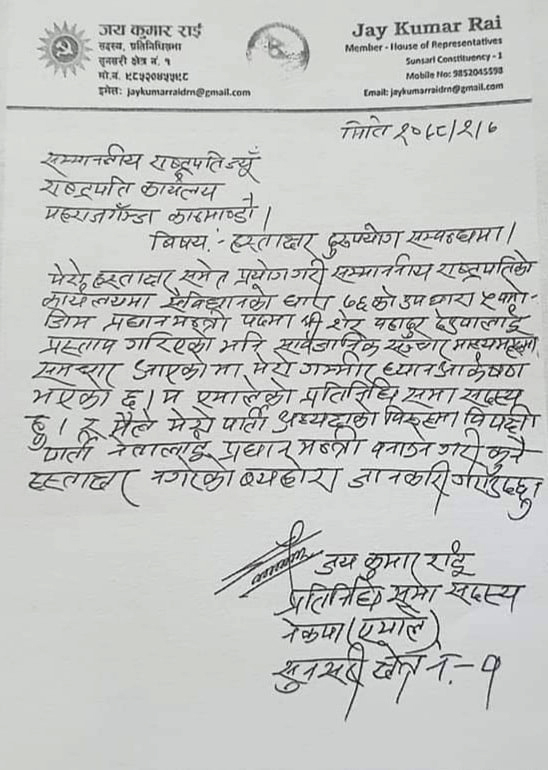 जय कुमार राई
सदस्य, प्रतिनिधिसभा
सुनसरी क्षेत्र नं. १
मो.नं. ९८५२०४५५९८
इमेल: jaykumarraidrn@gmail.com
Jay Kumar Rai
Member - House of Representatives
Sunsari Constituency - 1
Mobile No: 9852045598
Email: jaykumarraidrn@gmail.com
मिति २०७८/२/७
सम्माननीय राष्ट्रपतिज्यूँ
राष्ट्रपति कार्यलय
महाराजगँञ्ज काठमाण्डौ।
विषय:- हस्ताक्षर दुरुपयोग सम्बन्धमा।
मेरो हस्ताक्षर समेत प्रयोग गरी सम्माननीय राष्ट्रपतिको
कार्यलयमा संविधानको धारा ७६ को उपधारा ५ बमो-
जिम प्रधानमन्त्री पदमा श्री शेर बहादुर देउवालाई
प्रस्ताव गरिएको भनि सार्वजानिक सञ्चार
समाचार आएकोमा मेरो गम्भीर ध्यानआकर्षण
भएको छ। म एमालेको प्रतिनिधि सभा सदस्य
हुँ। र मैले मेरो पार्टी अध्यक्षको विरुद्धमा विपक्षी
पार्टी नेतालाई प्रधान मन्त्री बनाउने गरी कुनै
हस्ताक्षर नगरेको ब्यहोरा जानकारी गराउँदछु
जय कुमार राई
प्रतिनिधि सभा सदस्य
नेकपा (एमाले)
सुनसरी क्षेत्र नं.-१